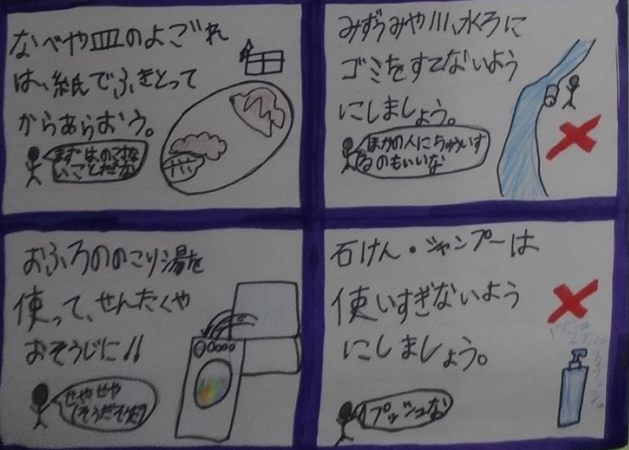 なべや皿のよごれ
は、紙でふきとって
からあらおう。
まずはのこさな
いことだな
みずうみや川、水ろに
ゴミをすてないよう
にしましょう。
ほかの人にちゅういす
るのもいいな
おふろののこり湯を
使って、せんたくや
おそうじに!!
せやせや
(そうだそうだ)
石けん・シャンプーは
使いすぎないよう
にしましょう。
1プッシュな